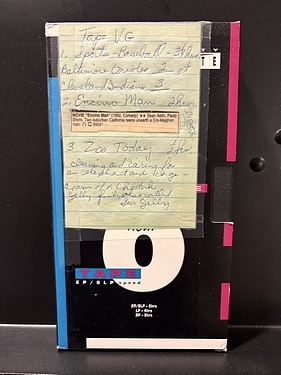 Tape VG
1. Sports - Baseball - 3 hrs
Baltimore Orioles 2 at
Cleveland Indians 3
2. Encino Man 2 hrs
MOVIE "Encino Man" (1992, Comedy) ★★ Sean Astin, Pauly
Shore. Two suburban California teens unearth a Cro-Magnon
man.
3. Zoo Today
cleaning and caring for
an elephant and
Jelly fish also called
Sea Jelly
T E
TAPE
EP/SLP speed
EP/SLP - 6hrs
LP - 4hrs
SP - 2hrs